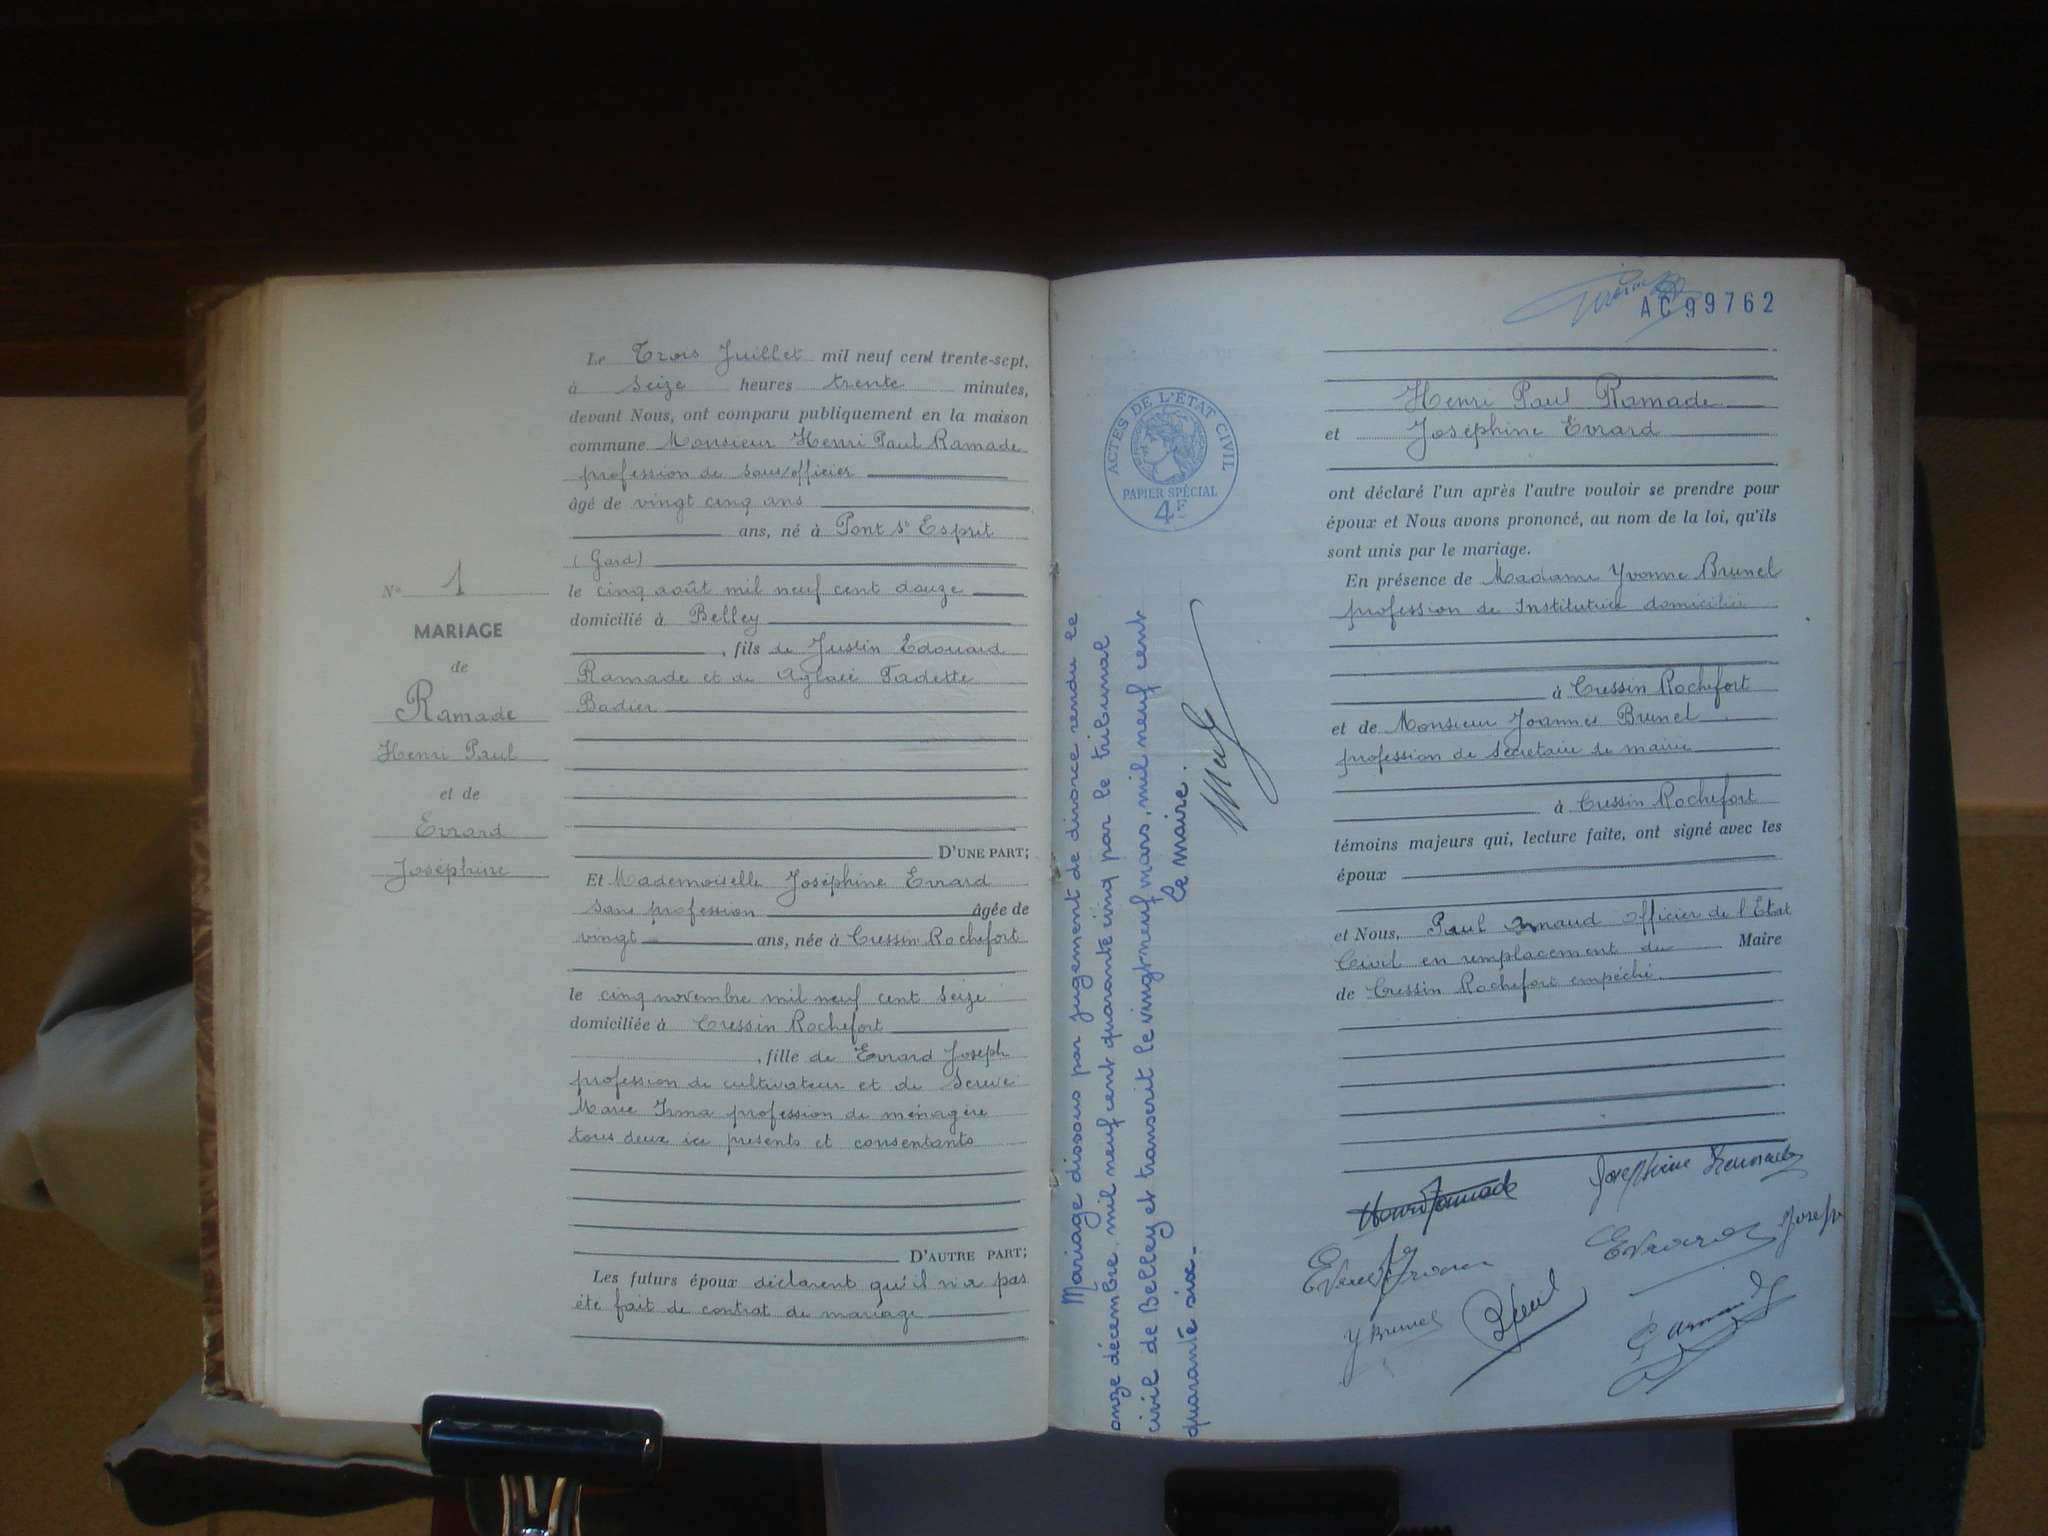 Le Trois Juillet mil neuf cent trente-sept,
à seize heures trente minutes,
devant Nous, ont comparu publiquement en la maison
commune Monsieur Henri Paul Ramade
profession de sous/officier
âgé de vingt cinq ans
ans, né à Pont St Esprit
(Gard)
le cinq août mil neuf cent douze
domicilié à Belley
, fils de Justin Edouard
Ramade et de Aglaée Tadette
Badier
D'UNE PART;
Et Mademoiselle Joséphine Evrard
sans profession âgée de
vingt ans, née à Cressin Rochefort
le cinq novembre mil neuf cent seize
domiciliée à Cressin Rochefort
, fille de Evrard Joseph
profession de cultivateur et de
Marie Irma profession de ménagère
tous deux ici présents et consentants
D'AUTRE PART;
Les futurs époux déclarent qu'il n'a pas
été fait de contrat de mariage
No 1
MARIAGE
de
Ramade
Henri Paul
et de
Evrard
Joséphine
AC 99762
ACTES DE L'ÉTAT CIVIL
PAPIER SPÉCIAL
4F
Mariage dissous par jugement de divorce rendu le
onze décembre mil neuf cent quarante cinq par le tribunal
civil de Belley et transcrit le vingt neuf mars, mil neuf cent
quarante six.
Le maire.
Henri Paul Ramade
et Joséphine Evrard
ont déclaré l'un après l'autre vouloir se prendre pour
époux et Nous avons prononcé, au nom de la loi, qu'ils
sont unis par le mariage.
En présence de Madame Yvonne Brunel
profession de Institutrice domiciliée
à Cressin Rochefort
et de Monsieur Joannes Brunel
profession de secrétaire de mairie
à Cressin Rochefort
témoins majeurs qui, lecture faite, ont signé avec les
époux
et Nous, Paul Arnaud officier de l'Etat
Civil en remplacement du Maire
de Cressin Rochefort empêché.
Joséphine
Evrard Joseph
Y Brunel